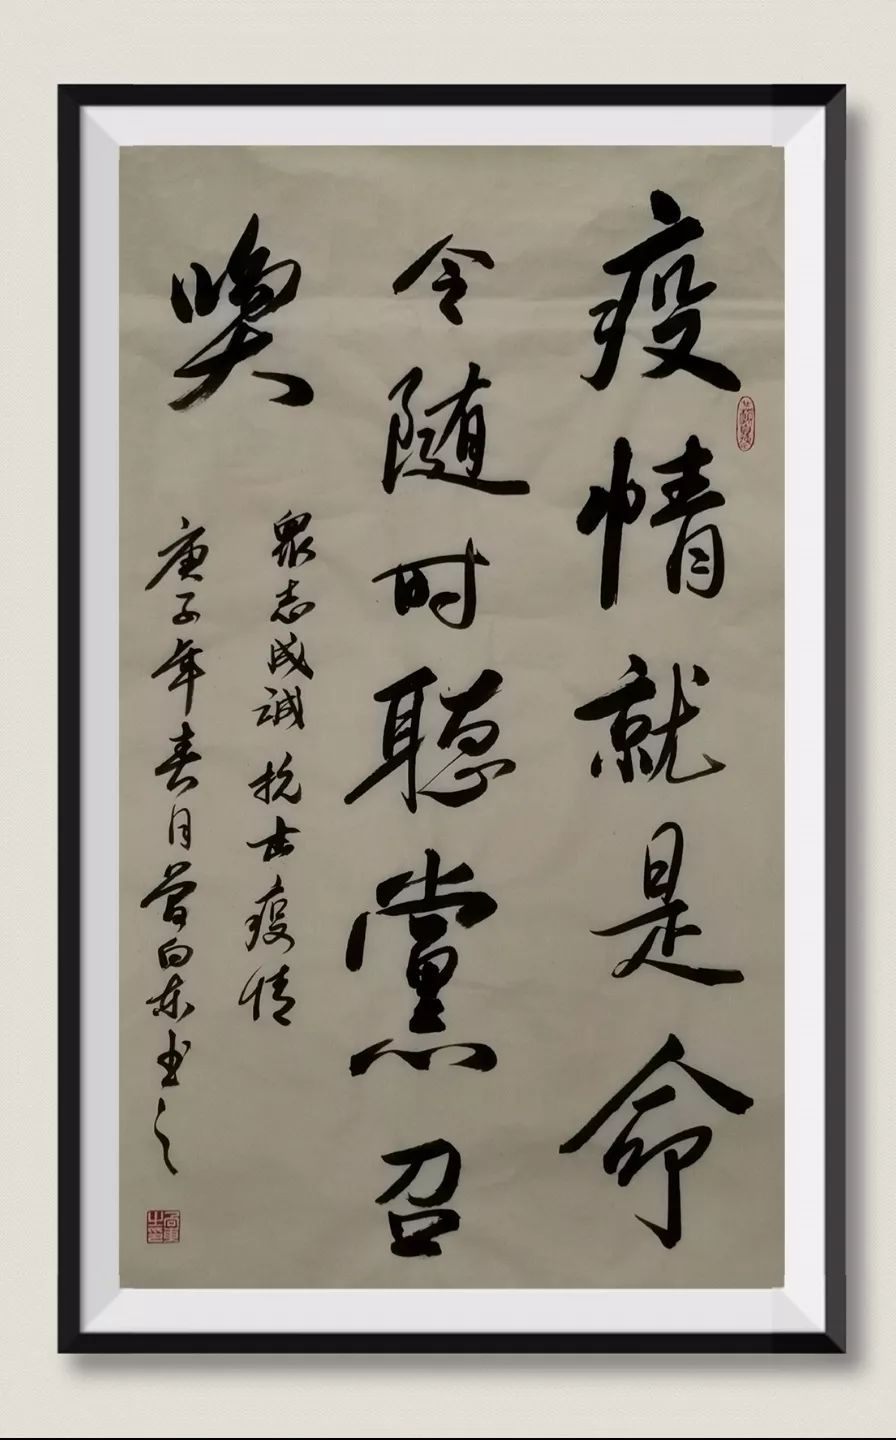 疫情就是命
令随时聽黨召
喚
眾志成诚 抗击疫情
庚子年春月曾向东书之